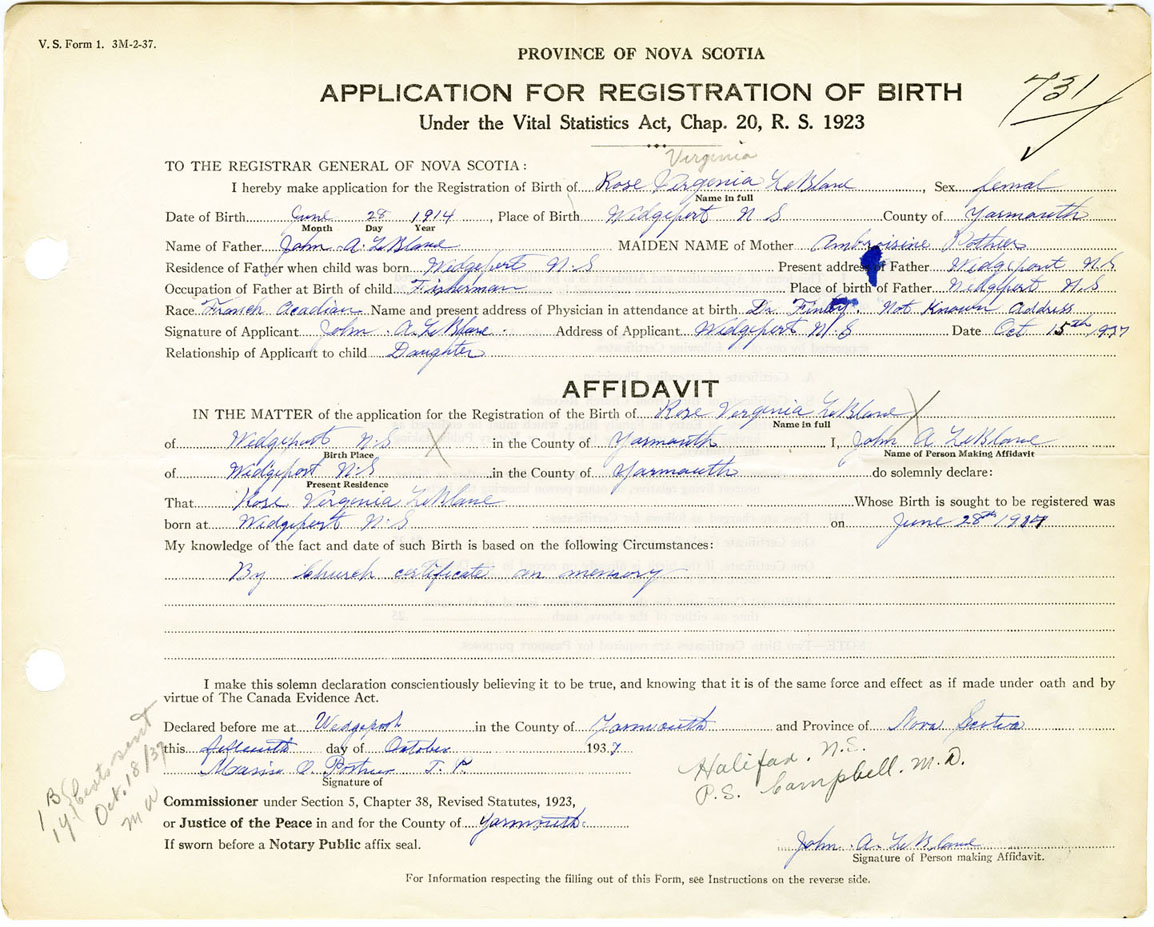 V. S. Form 1. 3M-2-37.
PROVINCE OF NOVA SCOTIA
APPLICATION FOR REGISTRATION OF BIRTH
731
Under the Vital Statistics Act, Chap. 20, R. S. 1923
Virginia
TO THE REGISTRAR GENERAL OF NOVA SCOTIA:
I hereby make application for the Registration of Birth of Rose Virginia LeBlanc, Sex femal
Name in full
Date of Birth June 28 1914, Place of Birth Widgeport N S County of Yarmouth
Month Day Year
Name of Father John A LeBlanc MAIDEN NAME of Mother Ambroisine Pothier
Residence of Father when child was born Widgeport N. S Present address of Father Widgeport N S
Occupation of Father at Birth of child Fisherman Place of birth of Father Widgeport N. S
Race French Acadian Name and present address of Physician in attendance at birth Dr. Not Known Address
Signature of Applicant John A. LeBlanc. Address of Applicant Widgeport N. S Date Oct 15th 1937
Relationship of Applicant to child Daughter
AFFIDAVIT
IN THE MATTER of the application for the Registration of the Birth of Rose Virginia LeBlanc X
Name in full
of Widgeport N. S X in the County of Yarmouth I, John A LeBlanc
Birth Place Name of Person Making Affidavit
of Widgeport N. S in the County of Yarmouth do solemnly declare:
Present Residence
That Rose Virginia LeBlanc Whose Birth is sought to be registered was
born at Widgeport N. S on June 28th 1914
My knowledge of the fact and date of such Birth is based on the following Circumstances:
By Church certificate an memory
I make this solemn declaration conscientiously believing it to be true, and knowing that it is of the same force and effect as if made under oath and by
virtue of The Canada Evidence Act.
Declared before me at Wedgeport in the County of Yarmouth and Province of Nova Scotia
this day of October 1937
Pothier J. P.
Signature of
Halifax, N.S.
P.S. Campbell. M.D.
Commissioner under Section 5, Chapter 38, Revised Statutes, 1923,
or Justice of the Peace in and for the County of Yarmouth
If sworn before a Notary Public affix seal.
John A. LeBlanc
Signature of Person making Affidavit.
For Information respecting the filling out of this Form, see Instructions on the reverse side.
1 B
sent
Oct. 18/37
M W